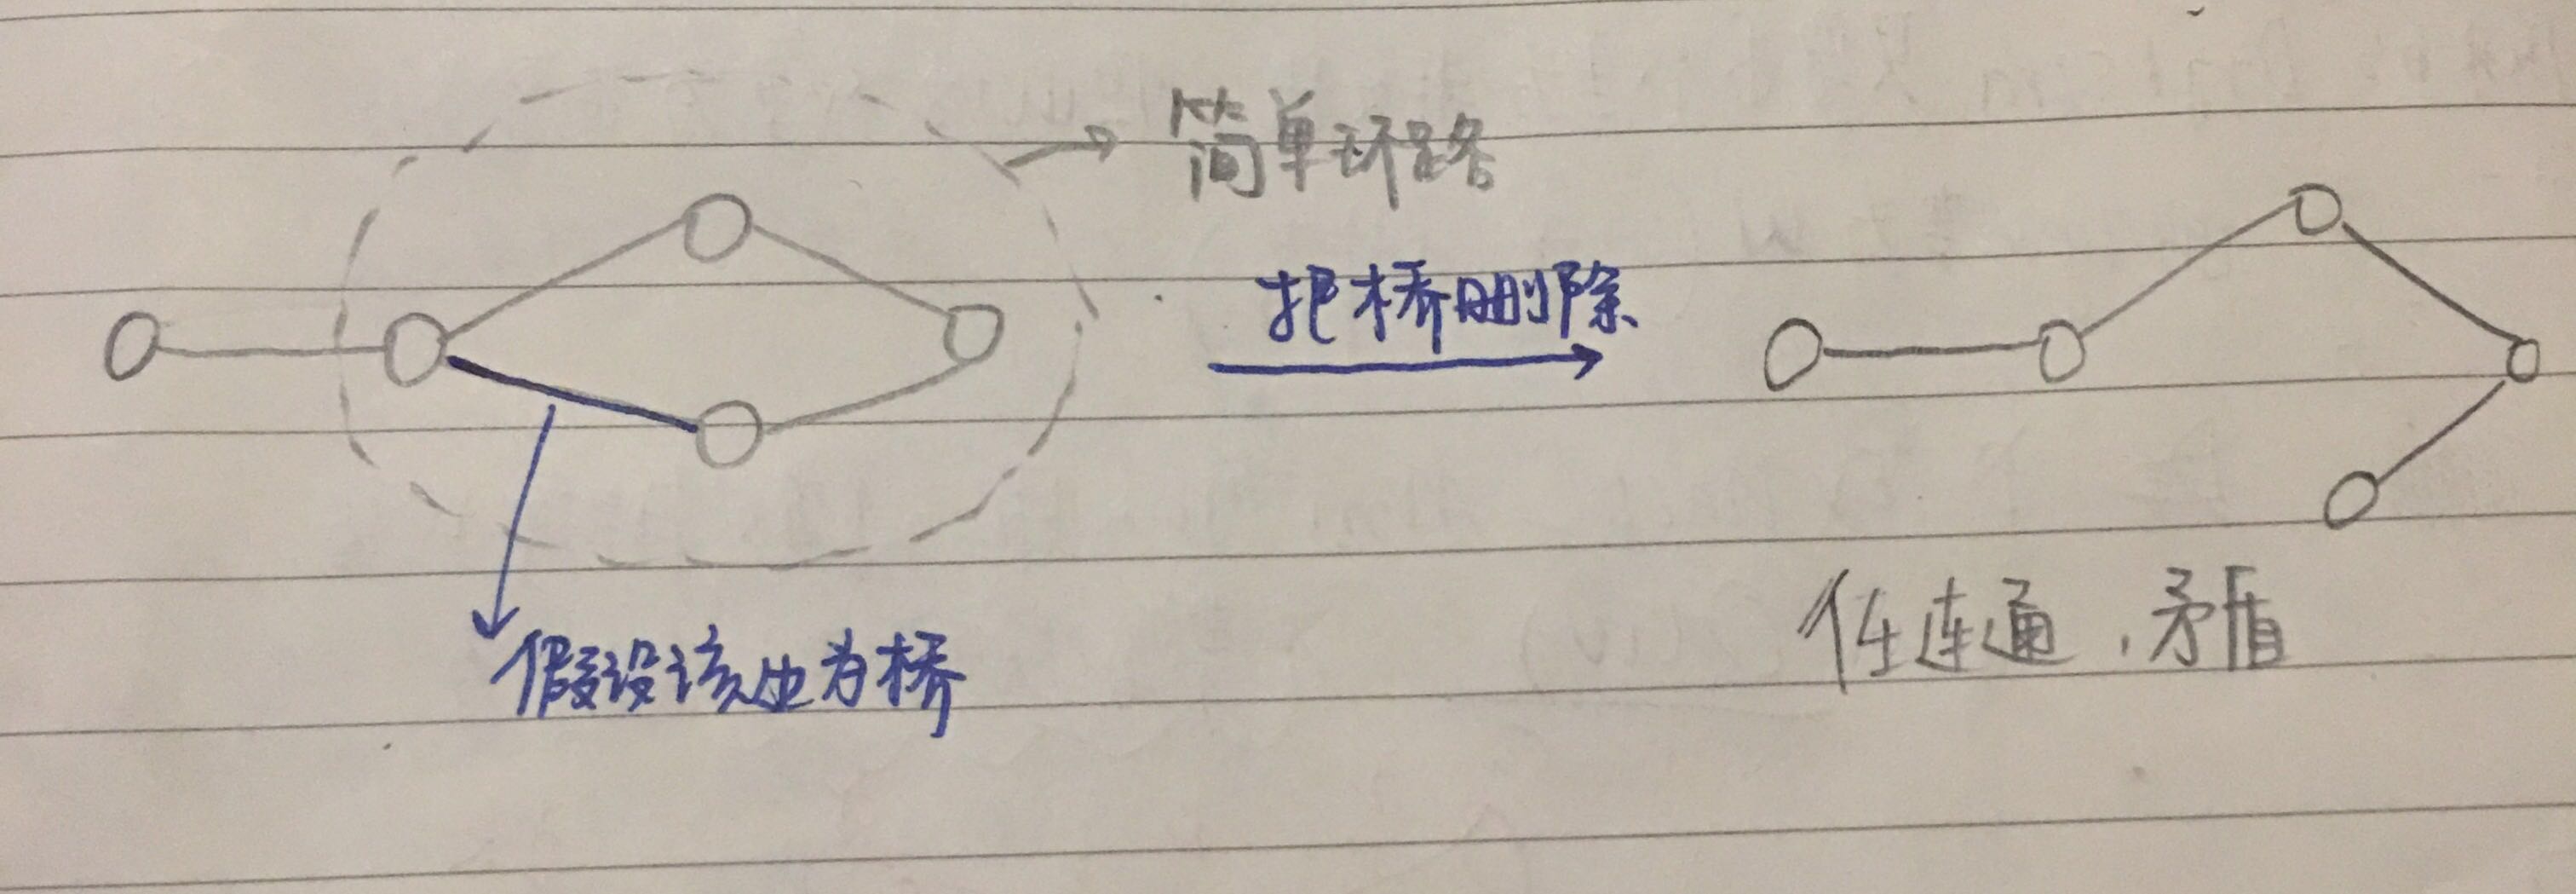 简单环路
把桥删除
假设该边为桥
任连通,矛盾